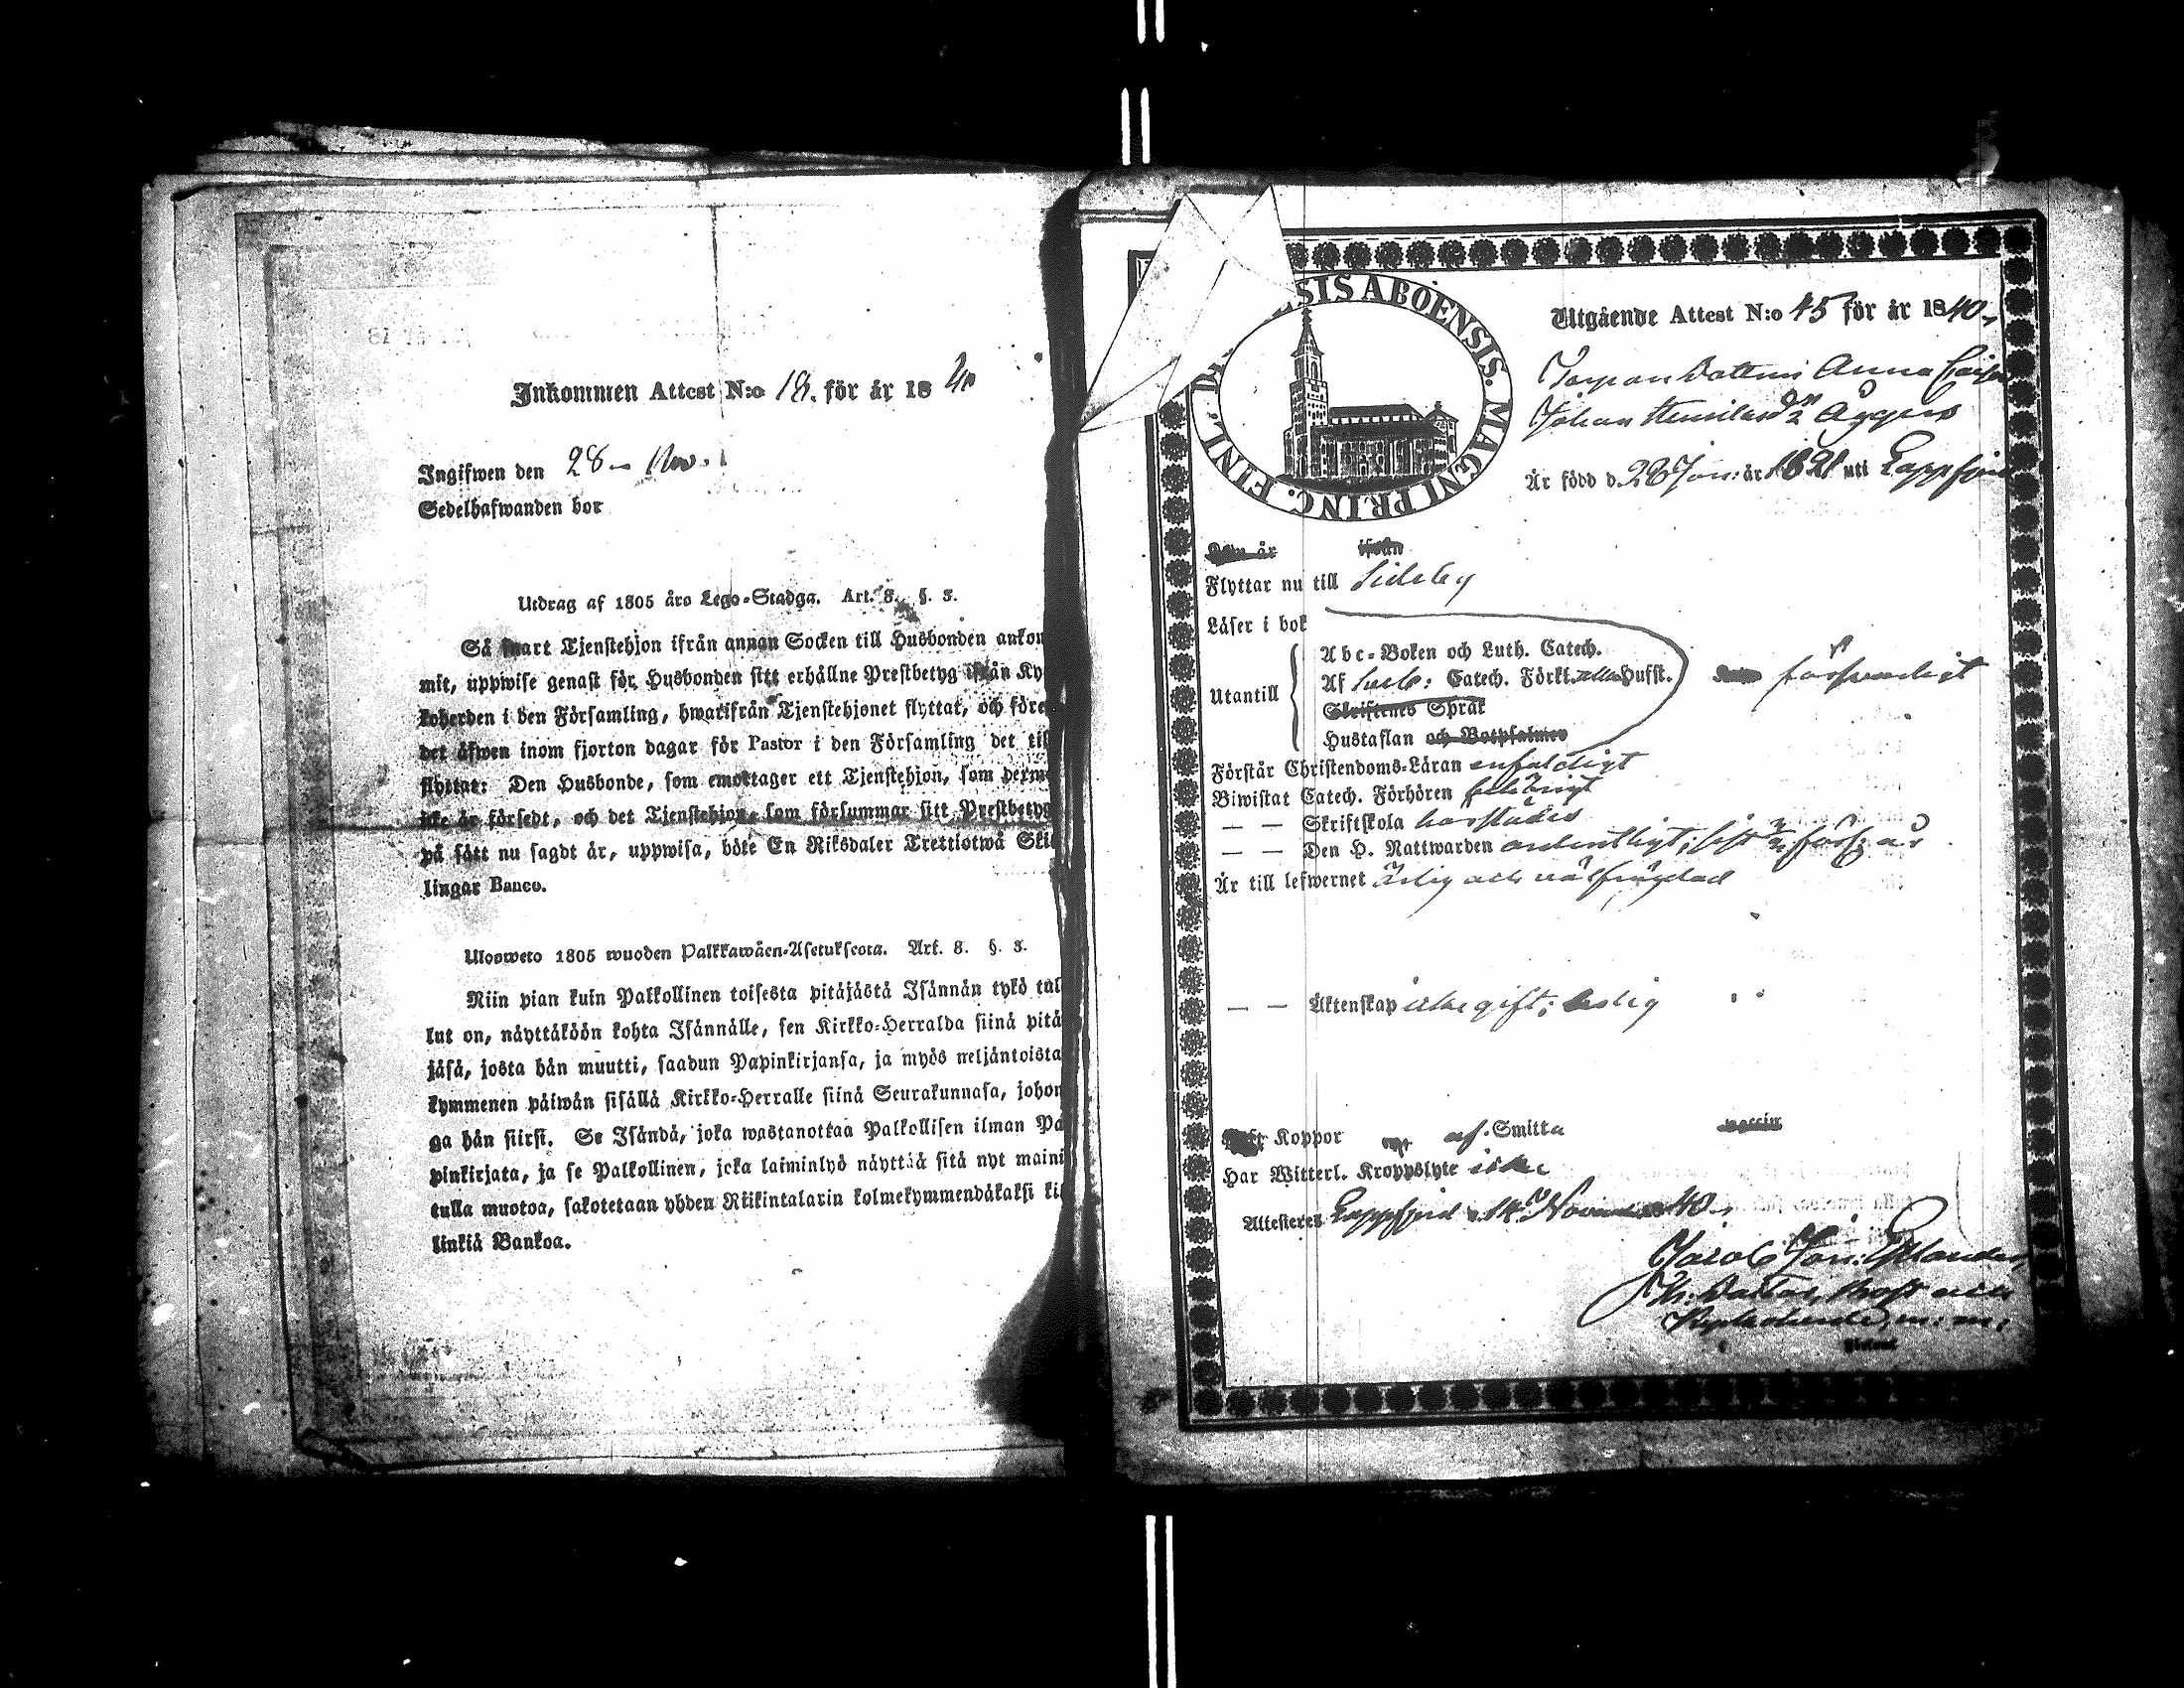 Inkommen Attest N:o 18. för år 1840
Ingifwen den 28 Nov.
Sedelhafwanden bor
Utdrag af 1805 års Lego-Stadga. Art. 8. §. 3.
Så snart Tjenstehjon ifrån annan Socken till Husbonden ankom-
mit, uppwise genast för Husbonden sitt erhållne Prestbetyg ifrån Ky-
koherden i den Församling, hwarifrån Tjenstehjonet flyttat, och före
det äfwen inom fjorton dagar för Pastor i den Församling det till
flyttat: Den Husbonde, som emottager ett Tjenstehjon, som dermed
icke är försedt, och det Tjenstehjon, som försummar sitt Prestbetyg
på sätt nu sagdt är, uppwisa, böte En Riksdaler Trettiotwå Skil-
lingar Banco.
Ulosweto 1805 wuoden Palkkawäen-Asetuksesta. Art. 8. §. 3.
Niin pian kuin Palkollinen toisesta pitäjästä Isännän tykö tul-
lut on, näyttäköön kohta Isännälle, sen Kirkko-Herralda siinä pitä-
jäsä, josta hän muutti, saadun Papinkirjansa, ja myös neljäntoista
kymmenen päiwän sisällä Kirkko-Herralle siinä Seurakunnasa, johon-
ga hän siirsi. Se Isändä, joka wastanottaa Palkollisen ilman Pa-
pinkirjata, ja se Palkollinen, joka laiminlyö näyttää sitä nyt maini-
tulla muotoa, sakotetaan yhden Riikintalarin kolmekymmendäkaksi kil-
linkiä Bankoa.
SIS ABOENSIS. MAGNI PRINC. FINL.
Utgående Attest N:o 45 för år 1840
Torparedottren Anna
Johan Äggers
Är född d. 28 Jan: år 1821 uti Lappfjerd
Den är ifrån
Flyttar nu till Sideby
Läser i bok
Abc-Boken och Luth. Catech.
Af Catech. Förkl. eller Hufst.
Utantill
Skriftenes Språk
försvarligt
Hustaflan och Botpsalmer
Förstår Christendoms-Läran enfaldigt
Biwistat Catech. Förhören behörigt
— — Skriftskola härstädes
— — Den H. Nattwarden ordentligt, sist
Är till lefwernet ärlig och välfrägdad
— — Äktenskap icke gift; ledig
Koppor af Smitta vaccin
Har Witterl. Kroppslyte icke
Attesteres Lappfjerd d. 14 Novem 1840
Jacob Joh:
Past. Prost och
Kyrkoherde, m: m: